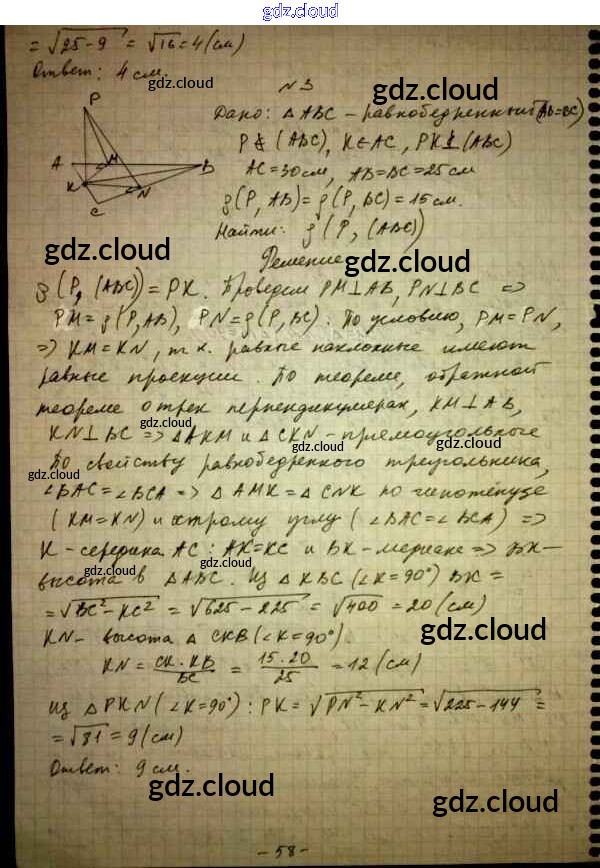 gdz.cloud
= √25-9 = √16 = 4 (см)
Ответ: 4 см.
gdz.cloud
gdz.cloud
N 3
Дано: △ABC - равнобедренный (AB=BC)
P ∉ (ABC), K ∈ AC, PK ⊥ (ABC)
AC = 30 см, AB = BC = 25 см
ρ(P, AB) = ρ(P, BC) = 15 см.
Найти: ρ(P, (ABC))
P
A
M
B
K
N
C
gdz.cloud
gdz.cloud
Решение
ρ(P, (ABC)) = PK. Проведем PM⊥AB, PN⊥BC =>
PM = ρ(P, AB), PN = ρ(P, BC). По условию, PM = PN,
=> KM = KN, т.к. равные наклонные имеют
равные проекции. По теореме, обратной
теореме о трех перпендикулярах, KM⊥AB,
KN⊥BC => △AKM и △CKN - прямоугольные
gdz.cloud
gdz.cloud
По свойству равнобедренного треугольника,
∠BAC = ∠BCA => △AMK = △CNK по гипотенузе
(KM = KN) и острому углу (∠BAC = ∠BCA) =>
K - середина AC: AK = KC и BK - медиана => BK -
gdz.cloud
gdz.cloud
высота в △ABC. Из △KBC (∠K = 90°) BK =
= √BC² - KC² = √625 - 225 = √400 = 20 (см)
KN - высота △CKB (∠K = 90°).
gdz.cloud
KN = CK · KB / BC = 15 · 20 / 25 = 12 (см)
Из △PKN (∠K = 90°): PK = √PN² - KN² = √225 - 144 =
= √81 = 9 (см)
Ответ: 9 см.
gdz.cloud
gdz.cloud
- 58 -